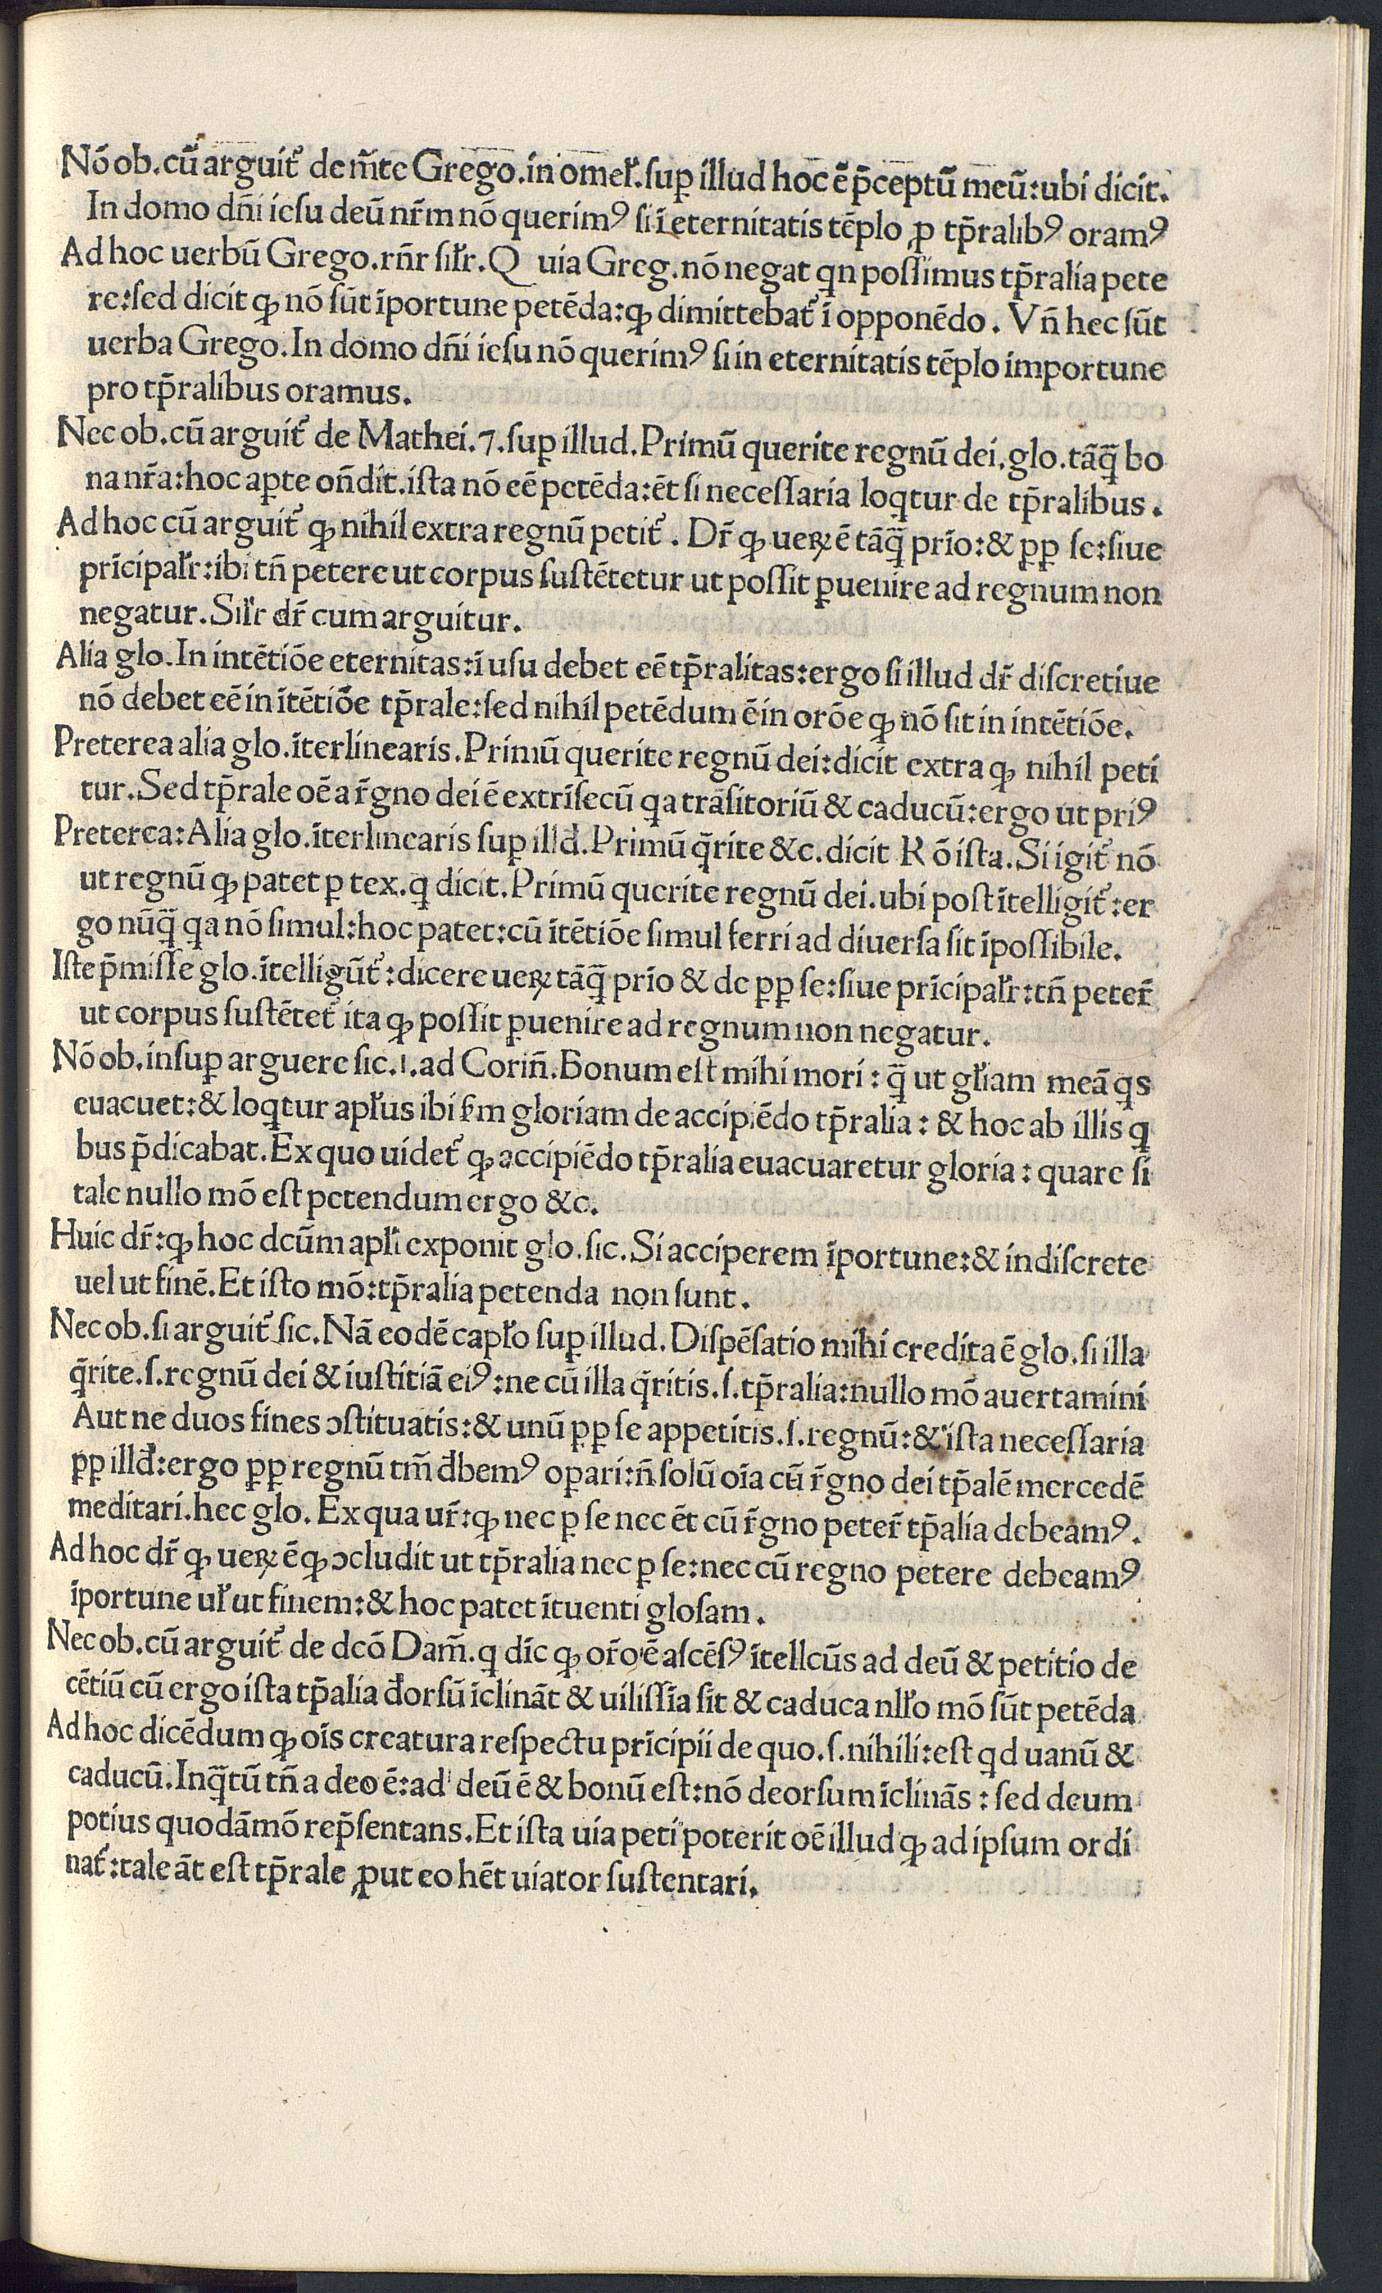 Nō ob. cū arguit᷑ de m̄te Grego. in omel̄. sup̱ illud hoc ē p̄ceptū meū: ubi dicit.
In domo dn̄i iesu deū nr̄m nō querimꝰ si ī eternitatis tēplo ꝓ tp̄ralibꝰ oramꝰ
Ad hoc uerbū Grego. rn̄r sil̄r. Q uia Greg. nō negat qn possimus tp̄ralia pete
re: sed dicit ꝙ nō sūt īportune petēda: ꝙ dimittebat᷑ ī opponēdo. Vn̄ hec sūt
uerba Grego. In domo dn̄i iesu nō querimꝰ si in eternitatis tēplo importune
pro tp̄ralibus oramus.
Nec ob. cū arguit᷑ de Mathei. 7. sup̱ illud. Primū querite regnū dei. glo. tāq̄ bo
na nr̄a: hoc ap̱te on̄dit. ista nō eē petēda: ēt si necessaria loqtur de tp̄ralibus.
Ad hoc cū arguit᷑ ꝙ nihil extra regnū petit᷑. Dr̄ ꝙ ueꝝ ē tāq̄ prīo: & ꝑꝑ se: siue
prīcipal̄r: ibi tn̄ petere ut corpus sustētetur ut possit ꝑuenire ad regnum non
negatur. Sil̄r dr̄ cum arguitur.
Alia glo. In intētiōe eternitas: ī usu debet eē tp̄ralitas: ergo si illud dr̄ discretiue
nō debet eē in ītētiōe tp̄rale: sed nihil petēdum ē in orōe ꝙ nō sit in intētiōe.
Preterea alia glo. īterlinearis. Primū querite regnū dei: dicit extra ꝙ nihil peti
tur. Sed tp̄rale oē a r̄gno dei ē extrīsecū qa trāsitoriū & caducū: ergo ut priꝰ
Preterea: Alia glo. īterlinearis sup̱ illđ. Primū q̄rite &c. dicit R ō ista. Si igit᷑ nō
ut regnū ꝙ patet ꝑ tex. q dicit. Primū querite regnū dei. ubi post ītelligit᷑: er
go nūq̄ qa nō simul: hoc patet: cū ītētiōe simul ferri ad diuersa sit īpossibile.
Iste p̄misse glo. ītelligūt᷑: dicere ueꝝ tāq̄ prīo & de ꝑꝑ se: siue prīcipal̄r: tn̄ peter̄
ut corpus sustētet᷑ ita ꝙ possit ꝑuenire ad regnum non negatur.
Nō ob. insup̱ arguere sic. 1. ad Corin̄. Bonum est mihi mori: q̄ ut gl̄iam meā qs
euacuet: & loqtur apl̄us ibi s̄m gloriam de accipiēdo tp̄ralia: & hoc ab illis q
bus p̄dicabat. Ex quo uidet᷑ ꝙ accipiēdo tp̄ralia euacuaretur gloria: quare si
tale nullo mō est petendum ergo &c.
Huic dr̄: ꝙ hoc dcūm apl̄i exponit glo. sic. Si acciperem īportune: & indiscrete
uel ut finē. Et isto mō: tp̄ralia petenda non sunt.
Nec ob. si arguit᷑ sic. Nā eodē capl̄o sup̱ illud. Dispēsatio mihi credita ē glo. si illa
q̄rite. s. regnū dei & iustitiā eiꝰ: ne cū illa q̄ritis. s. tp̄ralia: nullo mō auertamini
Aut ne duos fines ↄstituatis: & unū ꝑꝑ se appetitis. s. regnū: & ista necessaria
ꝑꝑ illđ: ergo ꝑꝑ regnū tm̄ đbemꝰ oꝑari: n̄ solū oīa cū r̄gno dei tp̄alē mercedē
meditari. hec glo. Ex qua ur̄: ꝙ nec ꝑ se nec ēt cū r̄gno peter̄ tp̄alia debeamꝰ.
Ad hoc dr̄ ꝙ ueꝝ ē ꝙ ↄcludit ut tp̄ralia nec ꝑ se: nec cū regno petere debeamꝰ
īportune ul̄ ut finem: & hoc patet ītuenti glosam.
Nec ob. cū arguit᷑ de dcō Dam̄. q dīc ꝙ or̄o ē ascēsꝰ ītellcūs ad deū & petitio de
cētiū cū ergo ista tp̄alia đorsū īclināt & uilissīa sit & caduca nll̄o mō sūt petēda
Ad hoc dicēdum ꝙ oīs creatura respectu prīcipii de quo. s. nihili: est qd uanū &
caducū. Inq̄tū tn̄ a deo ē: ad deū ē & bonū est: nō deorsum īclinās: sed deum
potius quodāmō rep̄sentans. Et ista uia peti poterit oē illud ꝙ ad ipsum ordi
nat᷑: tale āt est tp̄rale ꝓut eo hēt uiator sustentari.